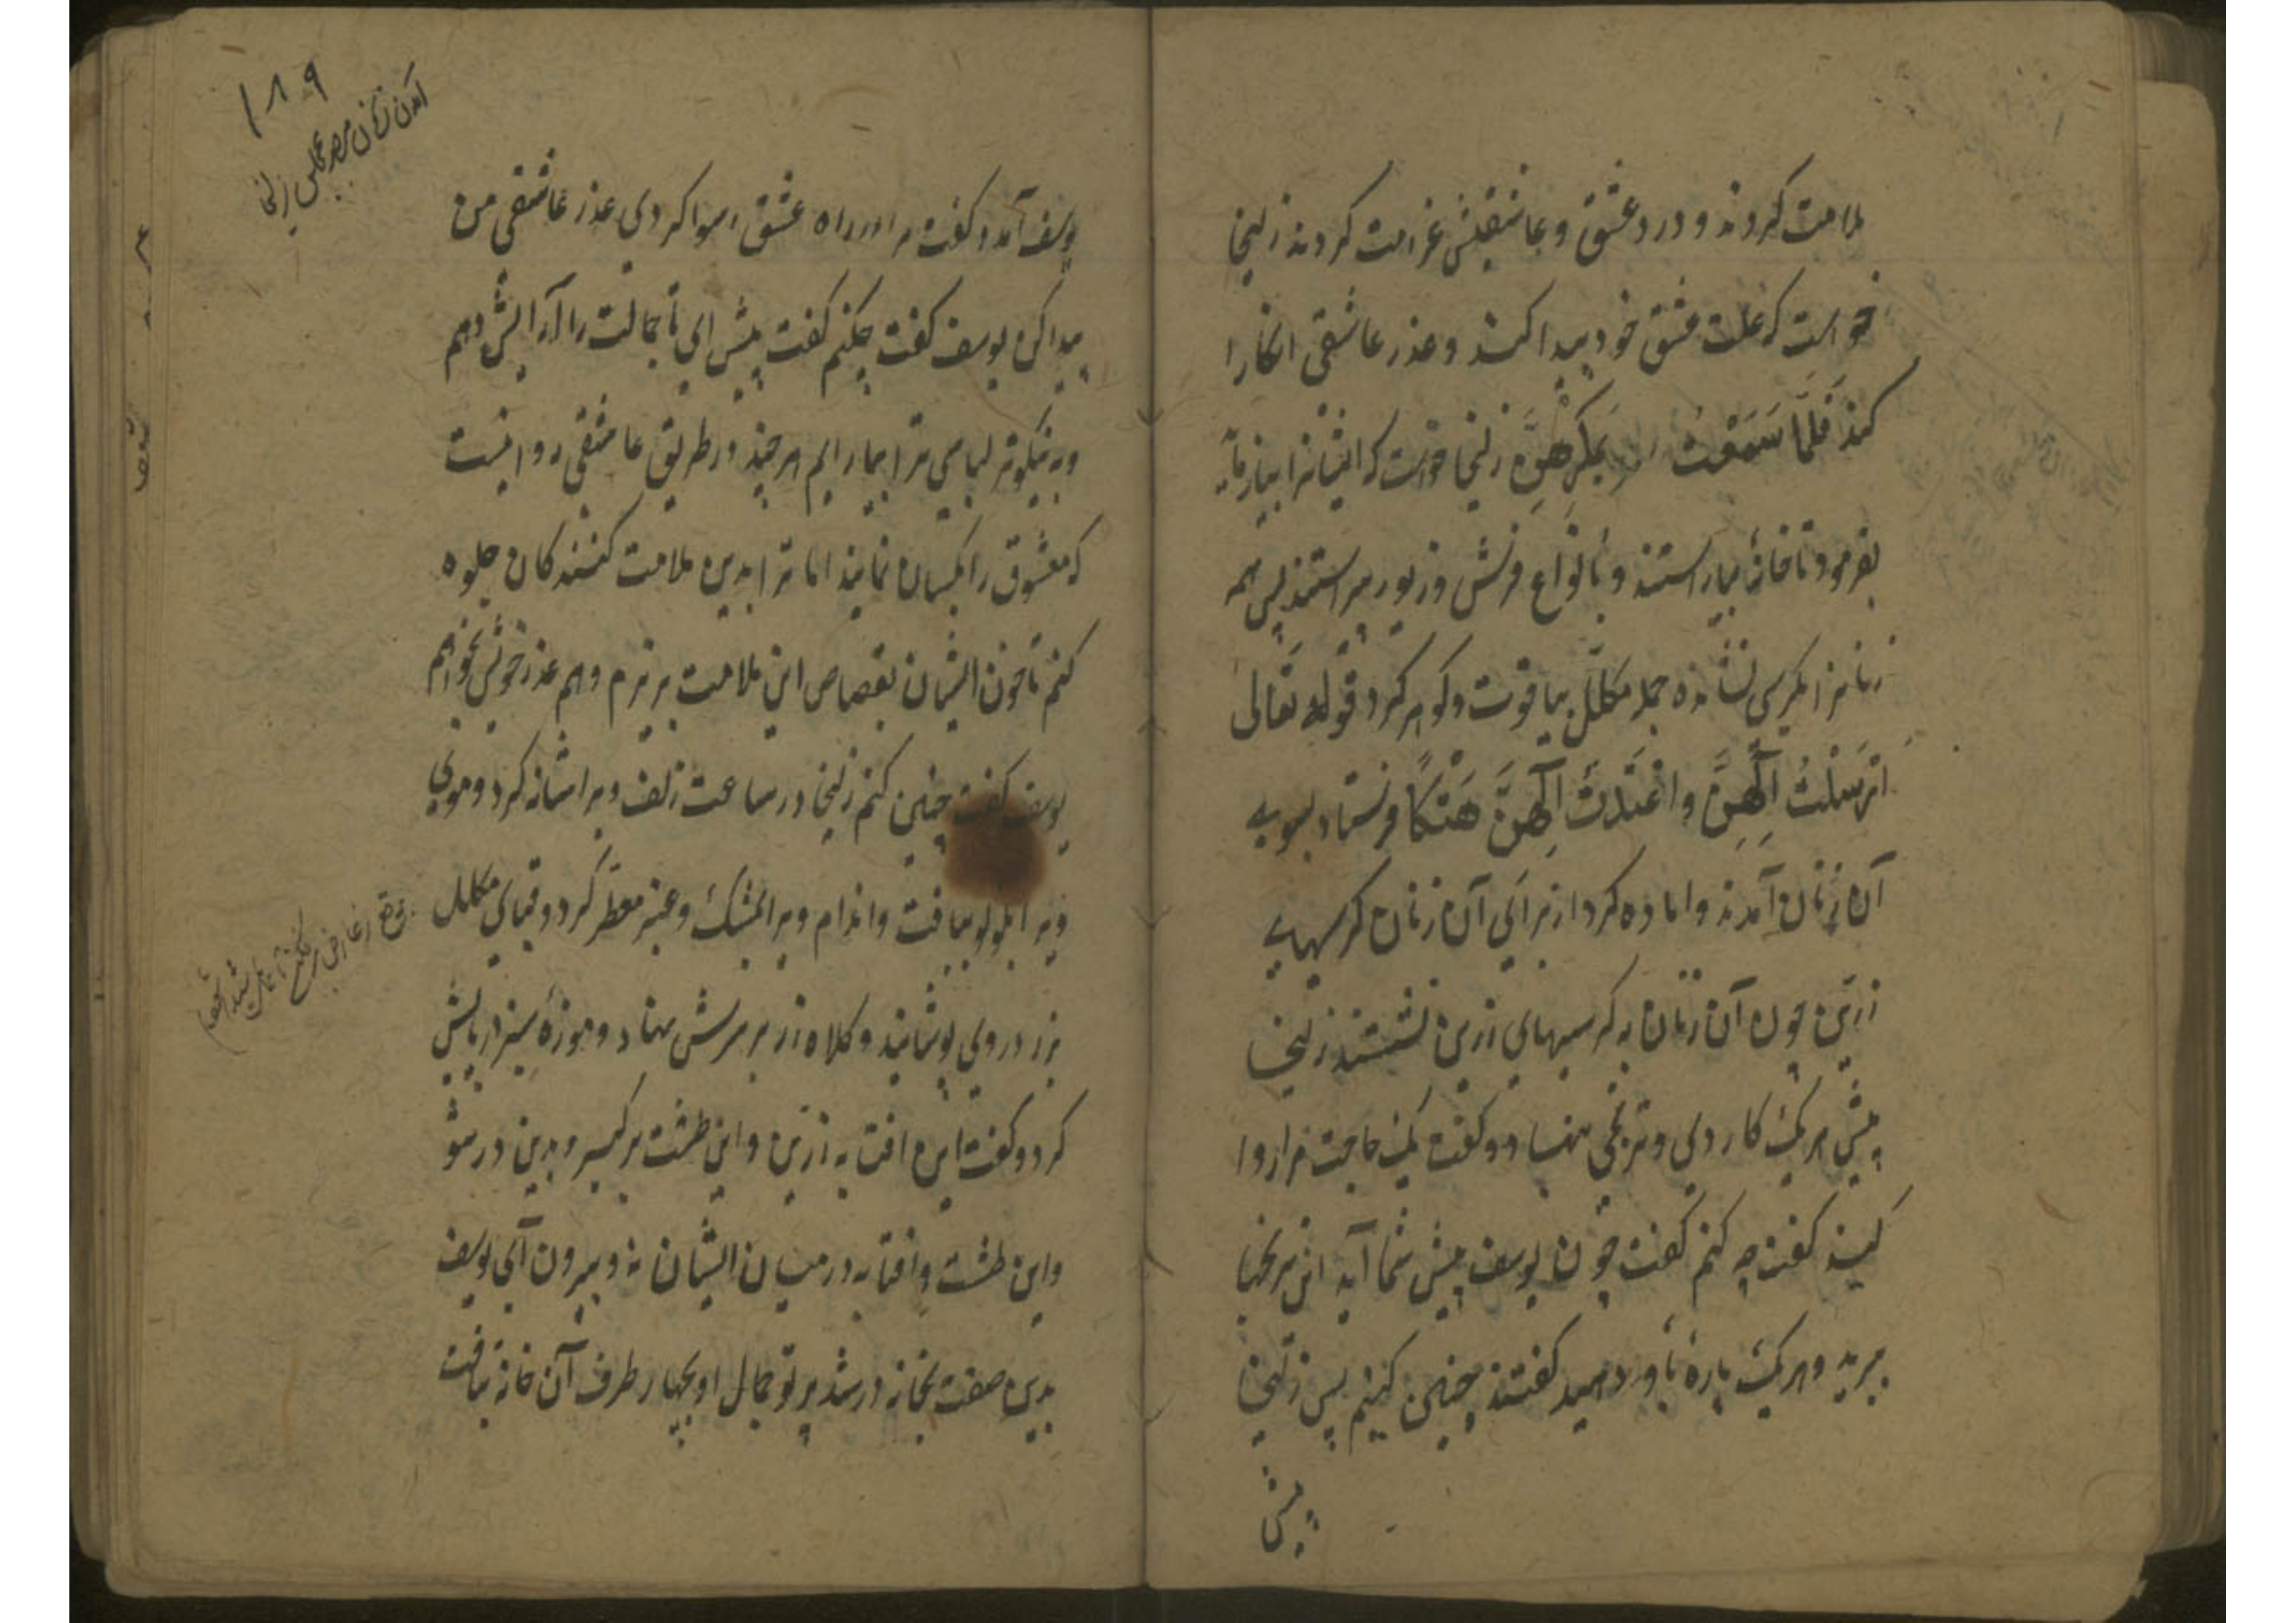 ملامت کردند و در درد عشق و عاشقیش غرامت کردند زلیخا
خواست که علت عشق خود پیدا کند و عذر عاشقی اشکارا
کند فَلَمَّا سَمِعَتْ بِمَكْرِهِنَّ زلیخا خواست که ایشانرا بیازماید
بفرمود تا خانهٔ بیاراستند و بانواع فرش و زیور پیراستند پس همه
زنانرا بکرسی نشانده جمله مکلّل بیاقوت و گوهر کرد قوله تعالی
ارسَلَتْ اِلَیهِنَّ و اعْتَدَتْ لَهُنَّ مُتَّكَأً فرستاد بسوی
آن زنان آمدند و اماده کرد از برای آن زنان کرسیهای
زرّین چون آن زنان به کرسیهای زرین نشستند زلیخا
پیش هر یک کاردی و ترنجی نهاد و گفت یک حاجت مرا روا
کنید گفتند چه کنم گفت چون یوسف پیش شما آید این ترنجها
ببرید و هر یک پارهٔ باو دهید گفتند چنین کنیم پس زلیخا
پیش
۱۸۹
آمدن زنان مصر بمجلس زلیخا
یوسف آمد و گفت مرا در راه عشق رسوا کردی عذر عاشقی من
پیدا کن یوسف گفت چکنم گفت پیش ای تا جمالت را آرایش دهم
و به نیکوتر لباسی ترا بیارایم هر چند در طریق عاشقی روا نیست
که معشوق را بکسان نمایند اما ترا بدین ملامت کنندکان جلوه
کنم تا خون ایشان بقصاص این ملامت بریزم و هم عذر خویش بخواهم
یوسف گفت چنین کنم زلیخا در ساعت زلف ویرا شانه کرد و موی
ویرا بلولو ببافت و اندام ویرا بمشک و عنبر معطّر کرد و قبای مکلل
بزر در وی پوشانید و کلاه زر بر سرش نهاد و موزهٔ سبز در پایش
کرد و گفت این افتابه زرین و این طشت برگیر و بدین در شو
و این طشت و افتابه در میان ایشان نه و بیرون آی یوسف
بدین صفت بخانه در شد پرتو جمال او بچهار طرف آن خانه بتافت